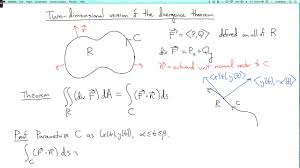 Two-dimensional version of the divergence theorem
F = <P,Q> defined on all of R
div F = Px + Qy
n = outward unit normal vector to C
R
C
Theorem
∬ (div F) dA = ∫ (F·n) ds
R
C
<x'(t), y'(t)>
<y'(t), -x'(t)>
R
C
Proof Parametrize C as (x(t), y(t)), α≤t≤β.
∫ (F·n) ds =
C